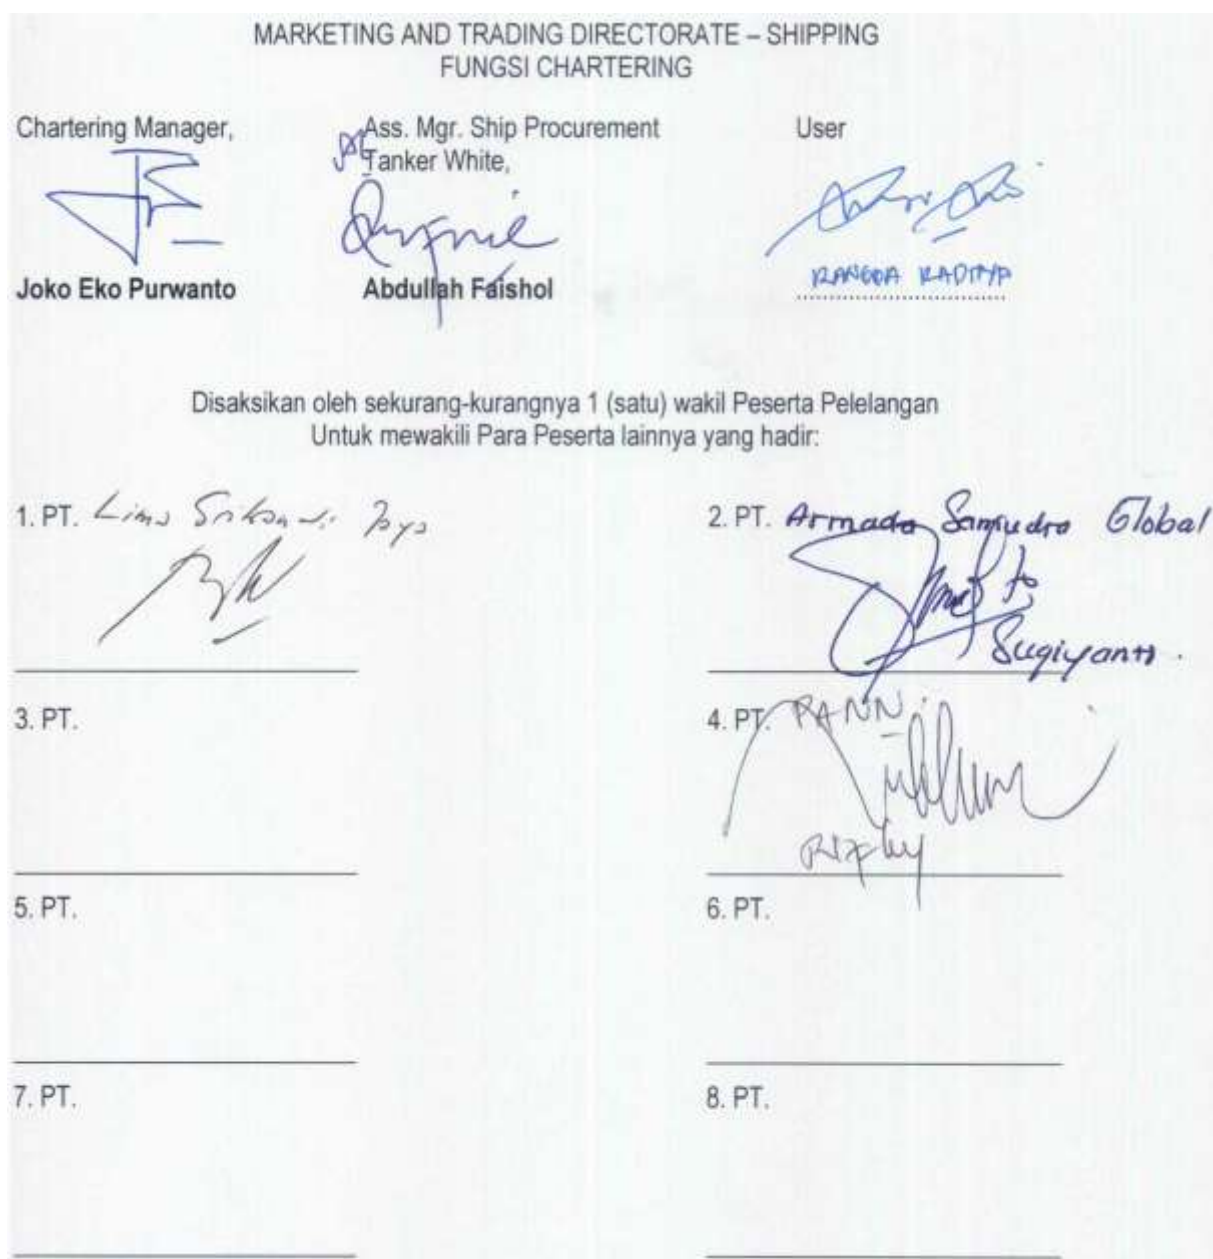 MARKETING AND TRADING DIRECTORATE – SHIPPING
FUNGSI CHARTERING
Chartering Manager,
Ass. Mgr. Ship Procurement
Tanker White,
User
Joko Eko Purwanto
Abdullah Faishol
RANGGA RADITYA
Disaksikan oleh sekurang-kurangnya 1 (satu) wakil Peserta Pelelangan
Untuk mewakili Para Peserta lainnya yang hadir:
1. PT. Lima
2. PT. Armada Samudra Global
Sugiyanto.
3. PT.
4. PT. PANN.
5. PT.
6. PT.
7. PT.
8. PT.